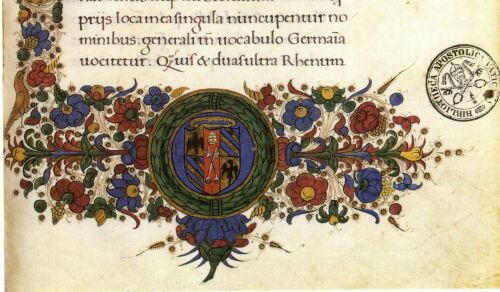 prijs loca in ea singula nuncupentur no
minibus. generali tn̄ vocabulo Germaīa
vocitetur. Qz̄uis & duas ultra Rhenum
BIBLIOTECA APOSTOLICA VATICANA